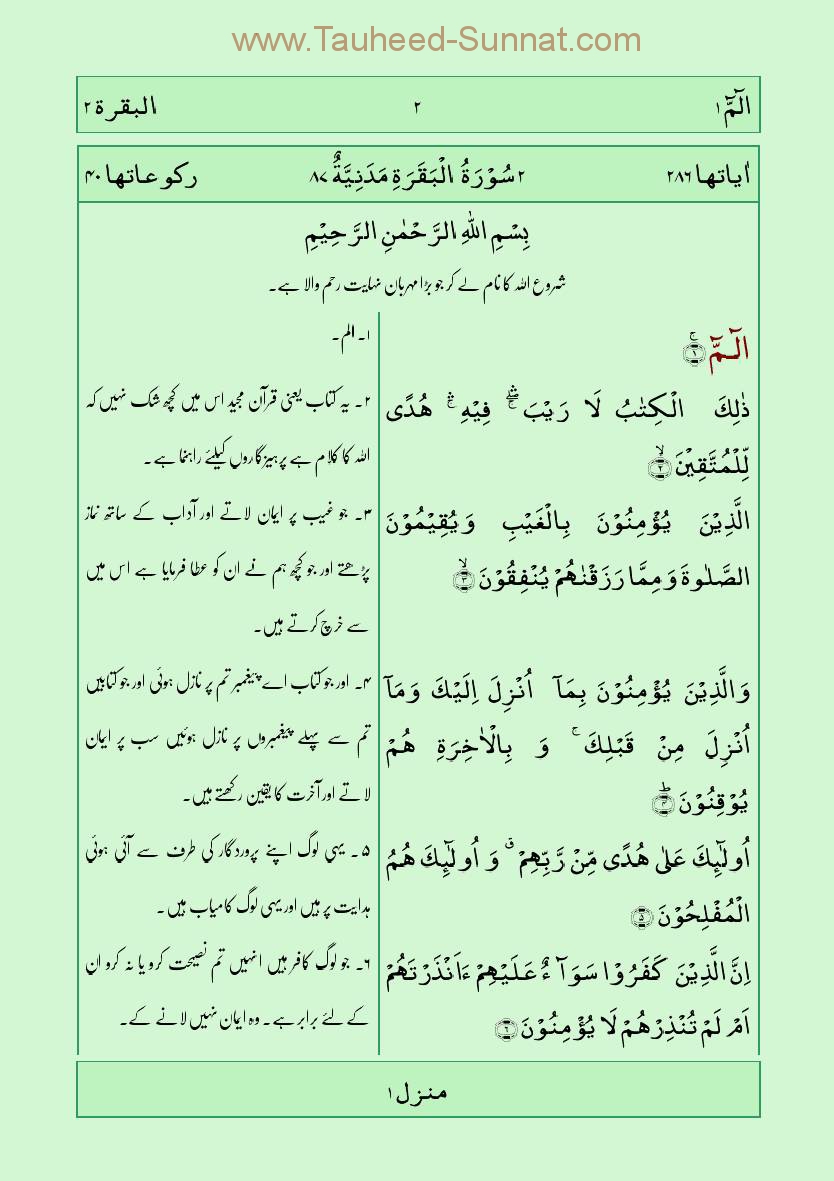 www.Tauheed-Sunnat.com
الٓمّٓ ۱ ۲ البقرة ۲
اٰیاتها ۲۸۶ ۲ سُوۡرَةُ الۡبَقَرَةِ مَدَنِیَّةٌ ۸۷ رکوعاتها ۴۰
بِسۡمِ اللّٰهِ الرَّحۡمٰنِ الرَّحِیۡمِ
شروع اللہ کا نام لے کر جو بڑا مہربان نہایت رحم والا ہے۔
الٓمّٓ ۚ﴿۱﴾
ذٰلِكَ الۡكِتٰبُ لَا رَیۡبَ ۚۖۛ فِیۡهِ ۚۛ هُدًی
لِّلۡمُتَّقِیۡنَ ۙ﴿۲﴾
الَّذِیۡنَ یُؤۡمِنُوۡنَ بِالۡغَیۡبِ وَیُقِیۡمُوۡنَ
الصَّلٰوةَ وَمِمَّا رَزَقۡنٰهُمۡ یُنۡفِقُوۡنَ ۙ﴿۳﴾
وَالَّذِیۡنَ یُؤۡمِنُوۡنَ بِمَاۤ اُنۡزِلَ اِلَیۡكَ وَمَاۤ
اُنۡزِلَ مِنۡ قَبۡلِكَ ۚ وَ بِالۡاٰخِرَةِ هُمۡ
یُوۡقِنُوۡنَ ؕ﴿۴﴾
اُولٰٓئِكَ عَلٰی هُدًی مِّنۡ رَّبِّهِمۡ ٭ وَ اُولٰٓئِكَ هُمُ
الۡمُفۡلِحُوۡنَ ﴿۵﴾
اِنَّ الَّذِیۡنَ كَفَرُوۡا سَوَآءٌ عَلَیۡهِمۡ ءَاَنۡذَرۡتَهُمۡ
اَمۡ لَمۡ تُنۡذِرۡهُمۡ لَا یُؤۡمِنُوۡنَ ﴿۶﴾
۱۔ الم۔
۲۔ یہ کتاب یعنی قرآن مجید اس میں کچھ شک نہیں کہ
اللہ کا کلام ہے پرہیزگاروں کیلئے راہنما ہے۔
۳۔ جو غیب پر ایمان لاتے اور آداب کے ساتھ نماز
پڑھتے اور جو کچھ ہم نے ان کو عطا فرمایا ہے اس میں
سے خرچ کرتے ہیں۔
۴۔ اور جو کتاب اے پیغمبر تم پر نازل ہوئی اور جو کتابیں
تم سے پہلے پیغمبروں پر نازل ہوئیں سب پر ایمان
لاتے اور آخرت کا یقین رکھتے ہیں۔
۵۔ یہی لوگ اپنے پروردگار کی طرف سے آئی ہوئی
ہدایت پر ہیں اور یہی لوگ کامیاب ہیں۔
۶۔ جو لوگ کافر ہیں انہیں تم نصیحت کرو یا نہ کرو انِ
کے لئے برابر ہے۔ وہ ایمان نہیں لانے کے۔
منزل ۱